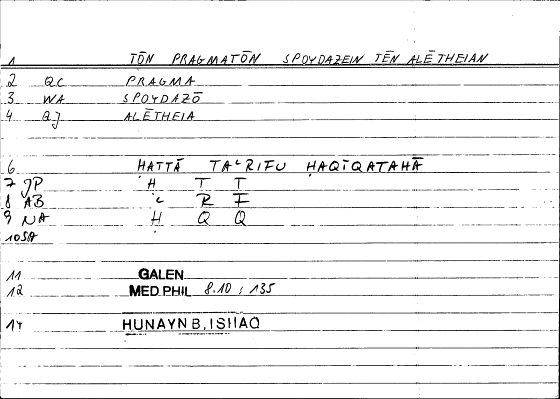 1 TŌN PRAGMATŌN SPOYDAZEIN TĒN ALĒTHEIAN
2 QC PRAGMA
3 WA SPOYDAZŌ
4 QJ ALĒTHEIA
6 HATTĀ TAʿRIFU HAQĪQATAHĀ
7 JP Ḥ T T
8 AB ʿ R F
9 NA Ḥ Q Q
10 SA
11 GALEN
12 MED.PHIL 8.10 ; 135
14 HUNAYN B. ISHAQ